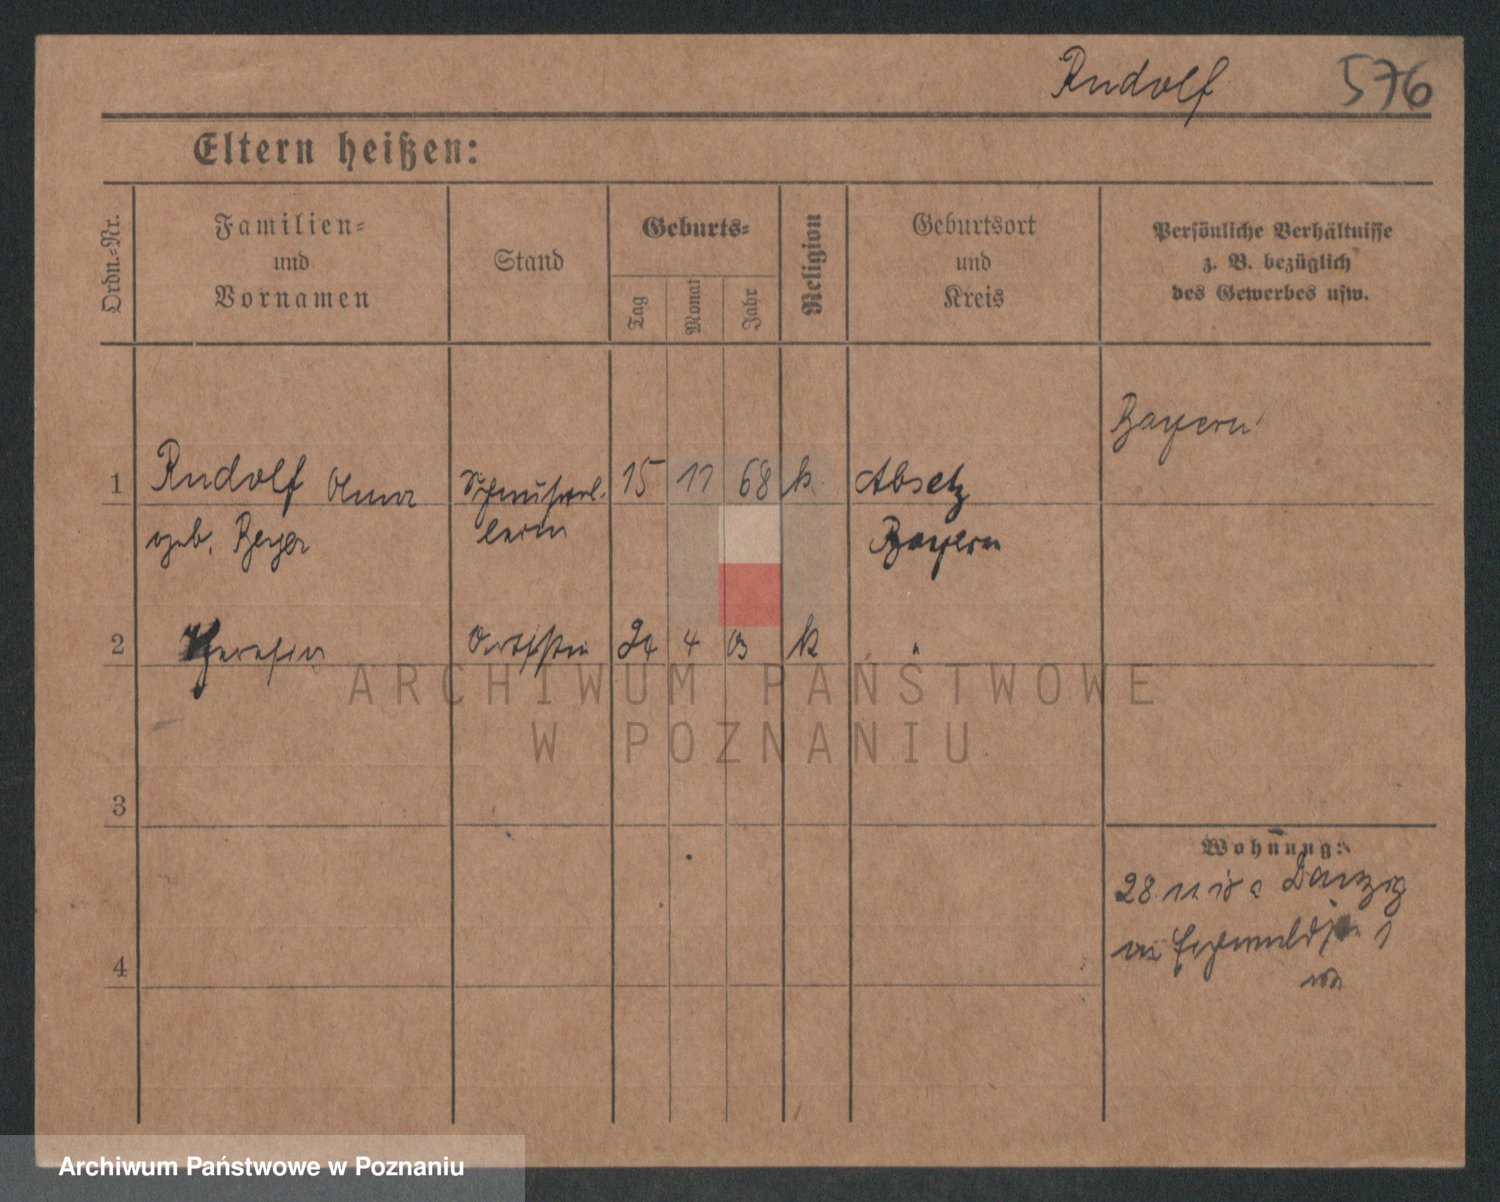 Rudolf 576
Eltern heißen:
Ordn.-Nr.
Familien-
und
Vornamen
Stand
Geburts-
Tag
Monat
Jahr
Religion
Geburtsort
und
Kreis
Persönliche Verhältnisse
z. B. bezüglich
des Gewerbes usw.
Bayern
1 Rudolf Anna 15 11 68 k Absetz
geb. Berger Bayern
2 Theresia Artistin 24 4 03 k "
ARCHIWUM PAŃSTWOWE
W POZNANIU
3
Wohnung:
28. 11. 18 Danzig
4
1
Archiwum Państwowe w Poznaniu